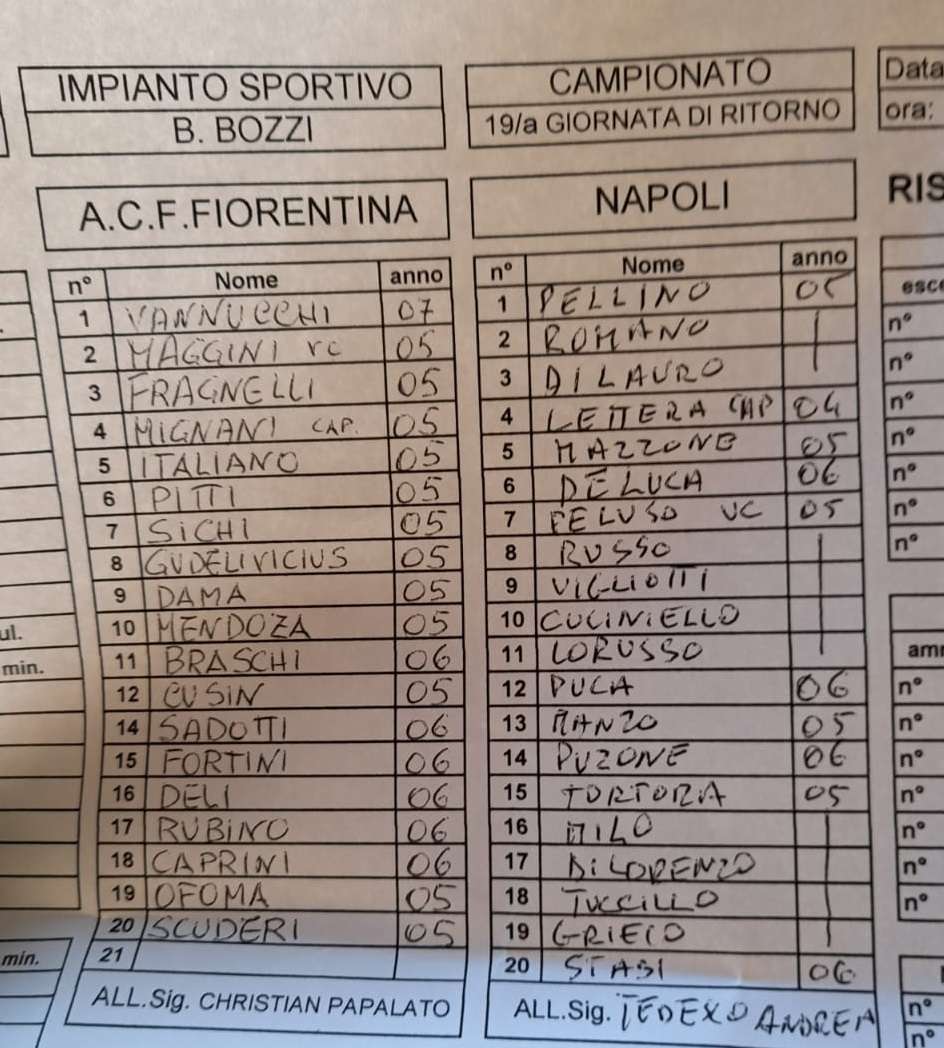 IMPIANTO SPORTIVO
B. BOZZI
CAMPIONATO
19/a GIORNATA DI RITORNO
Data
ora:
A.C.F.FIORENTINA
n° Nome anno
1 VANNUCCHI 07
2 MAGGINI VC 05
3 FRAGNELLI 05
4 MIGNANI CAP. 05
5 ITALIANO 05
6 PITTI 05
7 SiCHI 05
8 GUDELIVICIUS 05
9 DAMA 05
10 MENDOZA 05
11 BRASCHI 06
12 CUSIN 05
14 SADOTTI 06
15 FORTINI 06
16 DELI 06
17 RUBiNO 06
18 CAPRINI 06
19 OFOMA 05
20 SCUDERI 05
21
ALL.Sig. CHRISTIAN PAPALATO
NAPOLI
n° Nome anno
1 PELLINO 05
2 ROMANO
3 DI LAURO
4 LETTERA CAP 04
5 MAZZONE 05
6 DE LUCA 06
7 PELUSO VC 05
8 RUSSO
9 VIGLIOTTI
10 CUCINIELLO
11 LORUSSO
12 PUCA 06
13 MANZO 05
14 PUZONE 06
15 TORTORA 05
16 MILO
17 Di LORENZO
18 TUCCILLO
19 GRIECO
20 STASI 06
ALL.Sig. TEDEXO ANDREA
RIS
esc
n°
n°
n°
n°
n°
n°
n°
am
n°
n°
n°
n°
n°
n°
n°
n°
n°
ul.
min.
min.